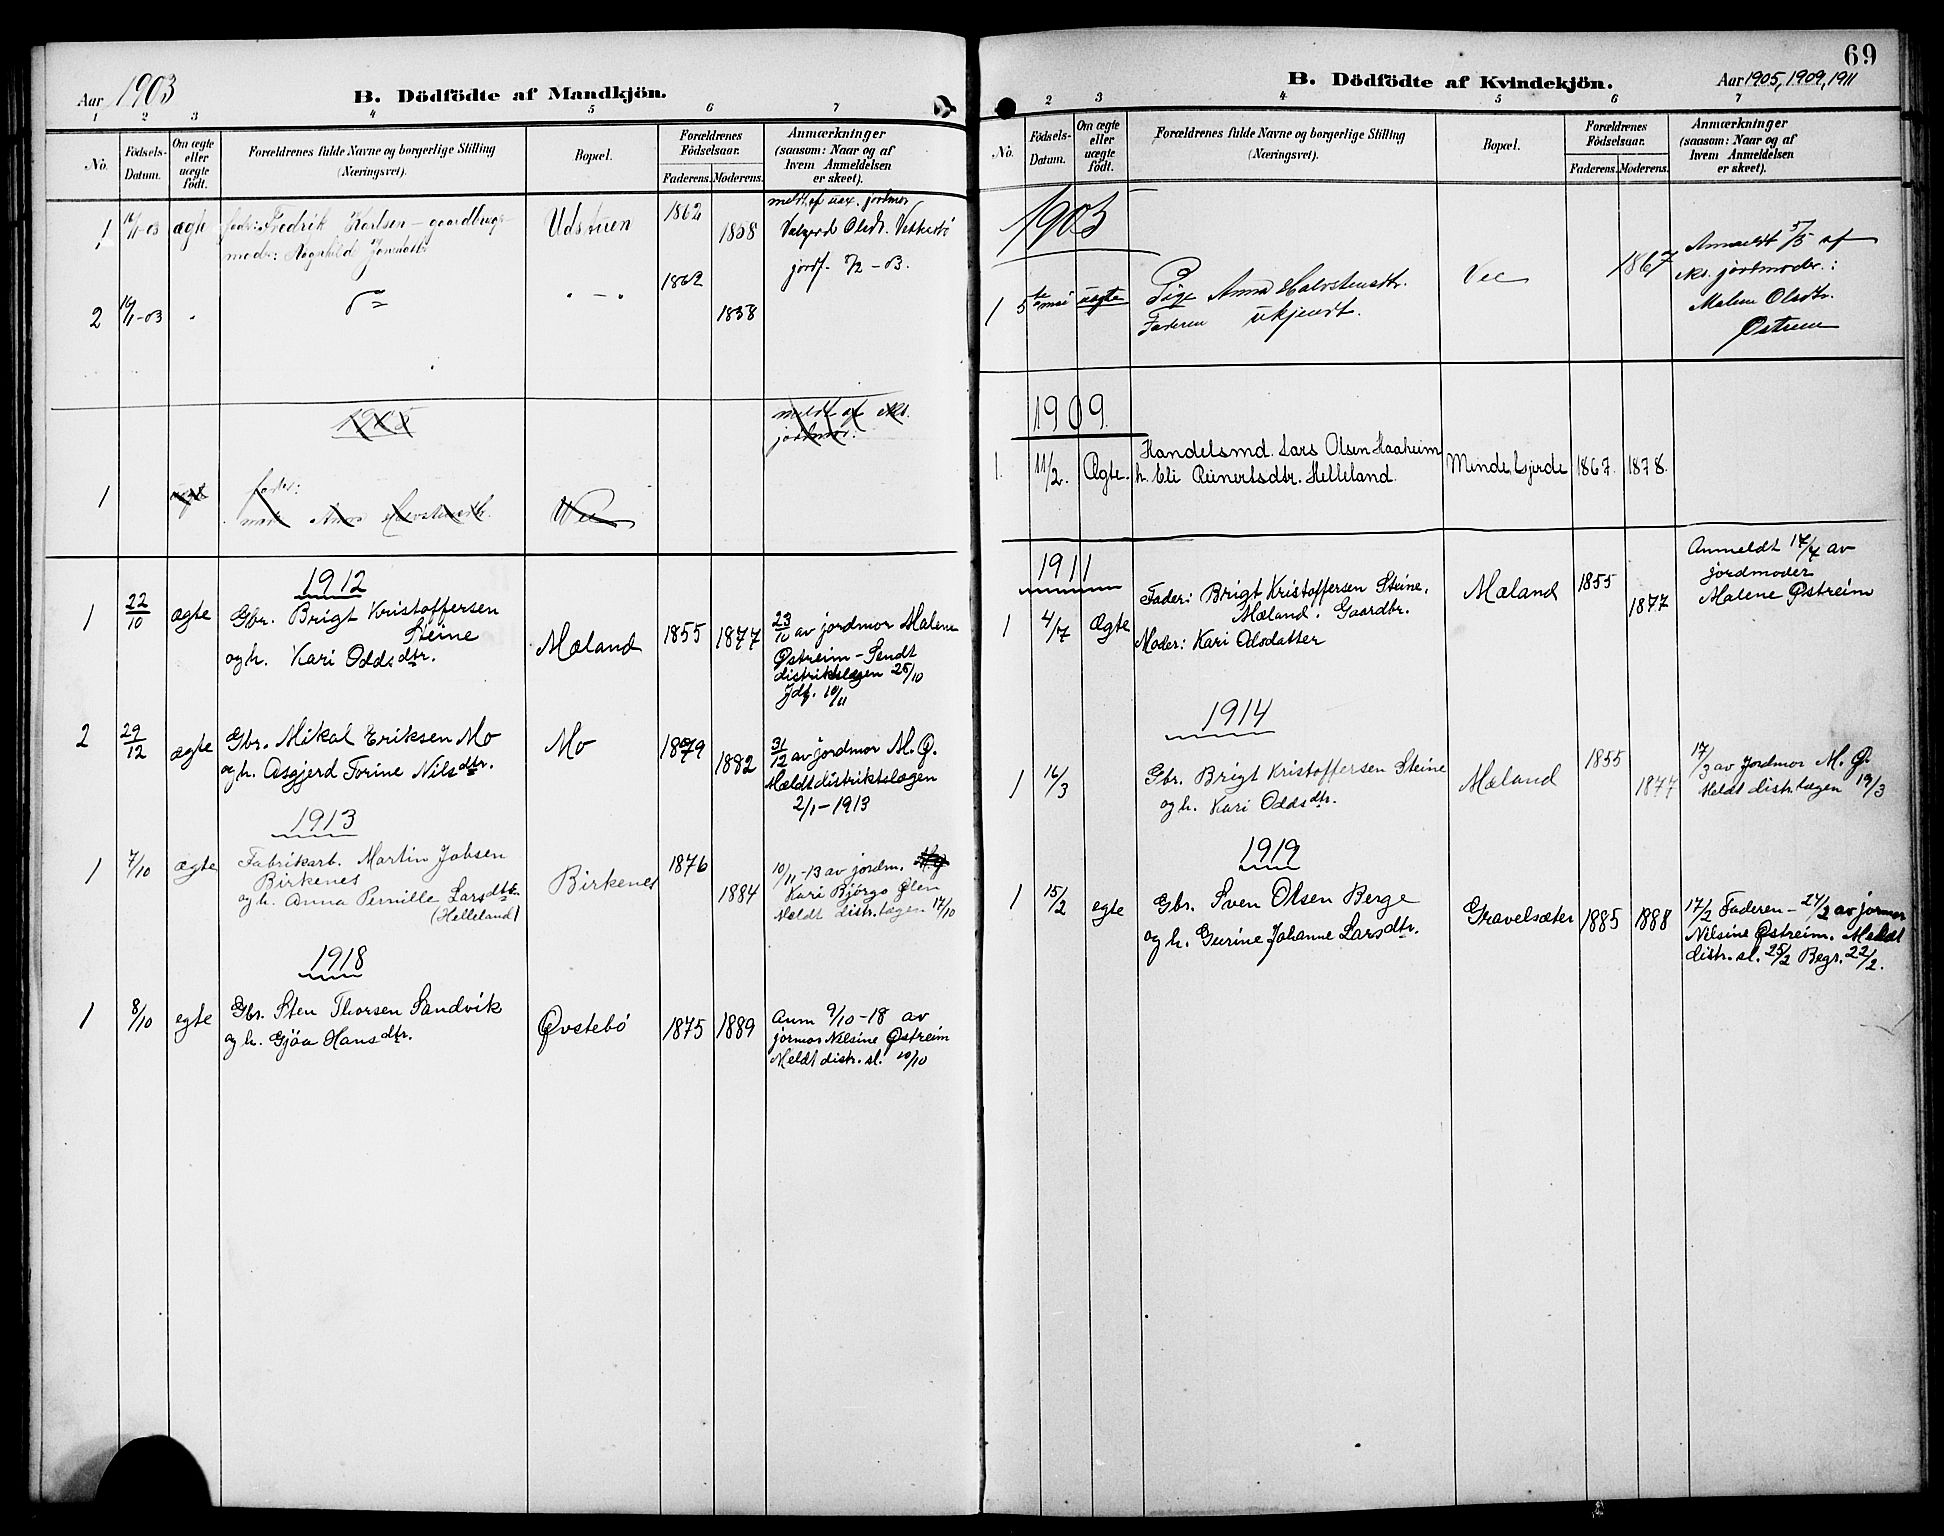 Aar 1903
B. Dödfödte af Mandkjön.
1 2 3 4 5 6 7
No.
Födsels-
Datum.
Om ægte
eller
uægte
födt.
Forældrenes fulde Navne og borgerlige Stilling
(Næringsvei).
Bopæl.
Forældrenes
Födselsaar.
Faderens. Moderens.
Anmærkninger
(saasom: Naar og af
hvem Anmeldelsen
er skeet).
1 16/1-03 ægte fader: Fredrik Karlsen - gaardbruger
moder: Ragnhilde
Udstuen 1862 1858
meldt af jordmor
Olsdt.
jordf. 7/2-03.
2 16/1-03 1862 1858
1905
meldt af
jordmor:
1
fader:
mor Anna Halvstensdtr.
Vee
1912
1 22/10 ægte Gbr. Brigt Kristoffersen
Steine
og h. Kari Oddsdtr.
Mæland 1855 1877
23/10 av jordmor Malene
Østreim - Sendt
distriktslægen 25/10
Jdf. 10/11
2 29/12 ægte Gbr. Mikal Eriksen Mo
og h. Asgjerd Torine Nilsdtr.
Mo 1879 1882
31/12 av jordmor M. Ø.
Meldt distriktslægen
2/1-1913
1913
1 7/10 ægte Fabrikarb. Martin Jobsen
Birkenes
og h. Anna Pernille Larsdtr.
(Helleland)
Birkenes 1876 1884
10/11-13 av jordm.
Kari Bjørgo Ølen
Meldt distr.lægen 17/10
1918
1 8/10 egte Gbr. Sten Thorsen Sandvik
og h. Gjöa Hansdtr.
Øvstebö 1875 1889
Anm 9/10-18 av
jormor Nilsine Østreim
Meldt distr. sl. 10/10
69
B. Dödfödte af Kvindekjön.
Aar 1905, 1909, 1911
2 3 4 5 6 7
No.
Födsels-
Datum.
Om ægte
eller
uægte
födt.
Forældrenes fulde Navne og borgerlige Stilling
(Næringsvei).
Bopæl.
Forældrenes
Födselsaar.
Faderens. Moderens.
Anmærkninger
(saasom: Naar og af
hvem Anmeldelsen
er skeet).
1905
1 5te mai uægte Pige Anna Halvstensdtr.
Faderen ukjendt.
Vee 1867
Anmeldt 5/5 af
jordmoder:
Malene Olsdtr.
Østreim
1909.
1. 11/2. Ægte. Handelsmd. Lars Olsen Haaheim
h. Eli Reinertsdtr. Helleland.
Minde, Gjerde 1867. 1878.
1911
1 4/7 Ægte Fader: Brigt Kristoffersen Steine,
Mæland. Gaardbr.
Moder: Kari Olsdatter
Mæland 1855 1877
Anmeldt 17/7 av
jordmoder
Malene Østreim
1914
1 16/3 Gbr. Brigt Kristoffersen Steine
og h. Kari Oddsdtr.
Mæland 1855 1877
17/3 av Jordmor M. Ø.
Meldt distr. lægen 19/3
1919
1 15/2 egte Gbr. Sven Olsen Berge
og h. Gurine Johanne Larsdtr.
Gravelsæter 1885 1888
17/2 Faderen - 24/2 av jormor
Nilsine Østreim. Meldt
distr. sl. 25/2 Begr. 22/2.